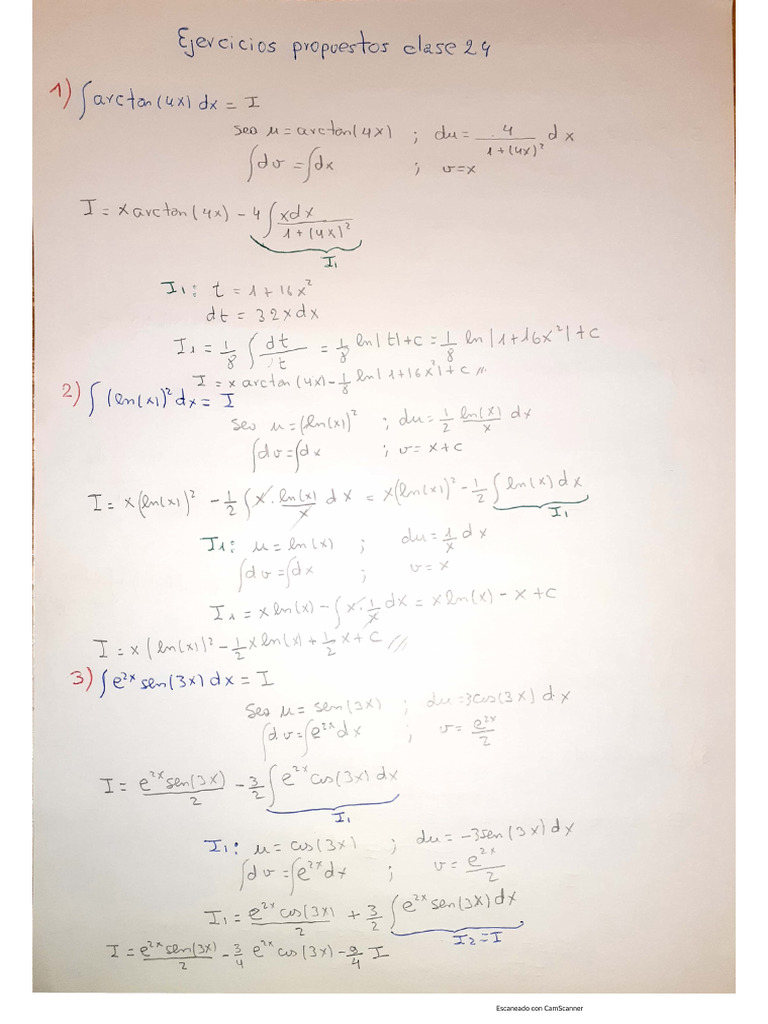 Ejercicios propuestos clase 24
1) ∫arctan(4x) dx = I
Sea u = arctan(4x) ; du = 4/(1+(4x)²) dx
∫dv = ∫dx ; v = x
I = x arctan(4x) - 4∫ xdx/(1+(4x)²)
I₁
I₁: t = 1+16x²
dt = 32xdx
I₁ = 1/8 ∫ dt/t = 1/8 ln|t|+c = 1/8 ln|1+16x²|+c
I = x arctan(4x) - 1/8 ln|1+16x²|+c //
2) ∫(ln(x))² dx = I
Sea u = (ln(x))² ; du = 1/2 ln(x)/x dx
∫dv = ∫dx ; v = x+c
I = x(ln(x))² - 1/2 ∫x · ln(x)/x dx = x(ln(x))² - 1/2 ∫ln(x) dx
I₁
I₁: u = ln(x) ; du = 1/x dx
∫dv = ∫dx ; v = x
I₁ = x ln(x) - ∫x · 1/x dx = x ln(x) - x + c
I = x(ln(x))² - 1/2 x ln(x) + 1/2 x + c //
3) ∫e²ˣ sen(3x) dx = I
Sea u = sen(3x) ; du = 3cos(3x) dx
∫dv = ∫e²ˣ dx ; v = e²ˣ/2
I = e²ˣ sen(3x)/2 - 3/2 ∫e²ˣ cos(3x) dx
I₁
I₁: u = cos(3x) ; du = -3sen(3x) dx
∫dv = ∫e²ˣ dx ; v = e²ˣ/2
I₁ = e²ˣ cos(3x)/2 + 3/2 ∫e²ˣ sen(3x) dx
I₂ = I
I = e²ˣ sen(3x)/2 - 3/4 e²ˣ cos(3x) - 9/4 I
Escaneado con CamScanner